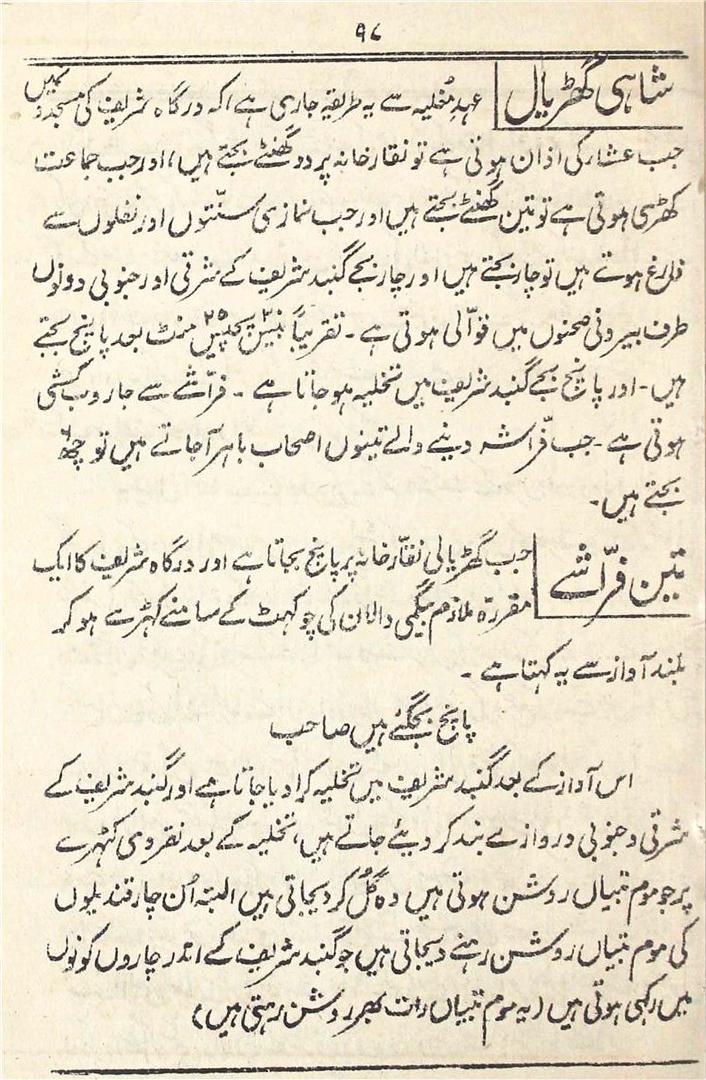 ۹۷
شاہی گھڑیال
عہدِ مُغلیہ سے یہ طریقہ جاری ہے اکہ درگاہ شریف کی مسجدوں میں
جب عشار کی اذان ہوتی ہے تو نقارخانہ پر دو گھنٹے بجتے ہیں، اور جب جماعت
کھڑی ہوتی ہے تو تین گھنٹے بجتے ہیں اور جب نمازی سنّتوں اور نفلوں سے
فارغ ہوتے ہیں تو چار بجتے ہیں اور چار بجے گنبد شریف کے مشرقی اور جنوبی دونوں
طرف بیرونی صحنوں میں قوّالی ہوتی ہے ۔ تقریباً بیس ۲۰ پچیس ۲۵ منٹ بعد پانچ بجتے
ہیں ۔ اور پانچ بجے گنبد شریف میں تخلیہ ہو جاتا ہے ۔ فرّاشے سے جاروب کشی
ہوتی ہے ۔ جب فرّاشہ دینے والے تینوں اصحاب باہر آجاتے ہیں تو چھ
بجتے ہیں ۔
تین فرّاشے
جب گھڑیالی نقّارخانہ پر پانچ بجاتا ہے اور درگاہ شریف کا ایک
مقررّہ ملازم بیگمی دالان کی چوکہٹ کے سامنے کہڑے ہو کر
بلند آواز سے یہ کہتا ہے ۔
پانچ بجگئے ہیں صاحب
اس آواز کے بعد گنبد شریف میں تخلیہ کرا دیا جاتا ہے اور گنبد شریف کے
مشرقی و جنوبی دروازے بند کر دیئے جاتے ہیں، تخلیہ کے بعد نقروی کٹہرے
پر جو موم بتیاں روشن ہوتی ہیں وہ گُل کر دیجاتی ہیں البتہ اُن چار قندیلوں
کی موم بتیاں روشن رہنے دیجاتی ہیں جو گنبد شریف کے اندر چاروں کونوں
میں رکہی ہوتی ہیں (یہ موم بتیاں رات بھر روشن رہتی ہیں)